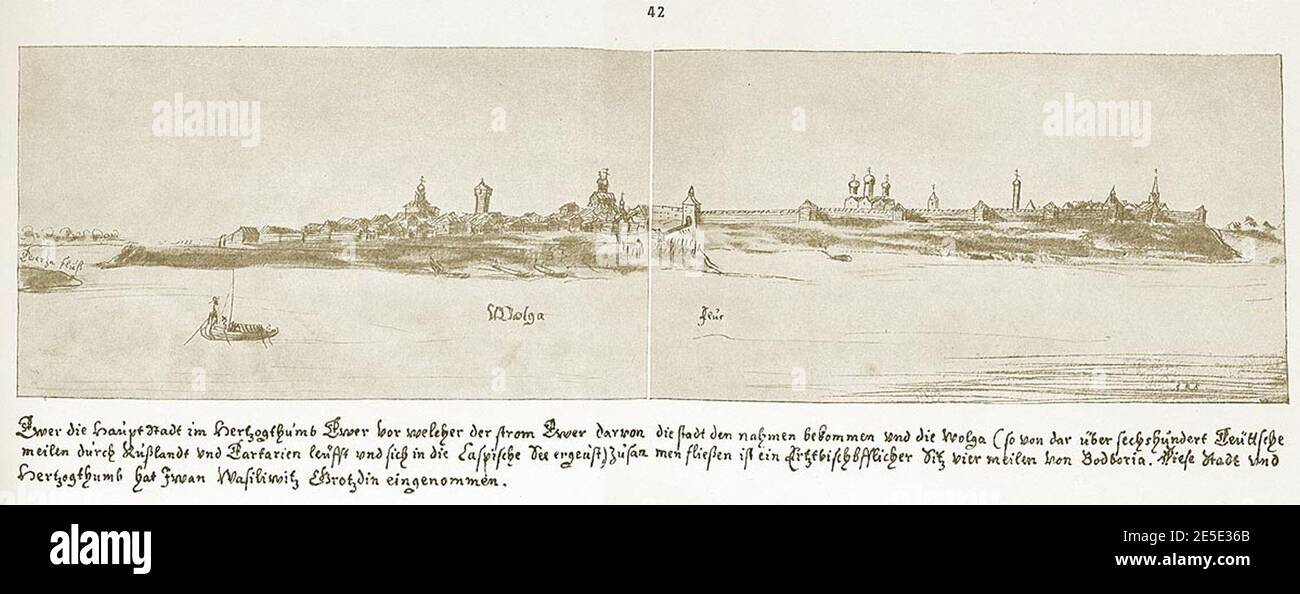 42
alamy
alamy
alamy
Twerza fluß
Wolga
Flus
Twer die Haupt Stadt im Hertzogthumb Twer vor welcher der strom Twer darvon die stadt den nahmen bekommen und die Wolga (so von dar über sechshundert Teütsche
meilen durch Rußlandt und Tartarien leüfft und sich in die Caspische See ergeust) Zusammen fließen ist ein Ertzbischöfflicher Sitz vier meilen von Bodboria. Diese Stadt und
Hertzogthumb hat Jwan Wasiliwitz Grotzdin eingenommen.
alamy
Image ID: 2E5E36B
www.alamy.com